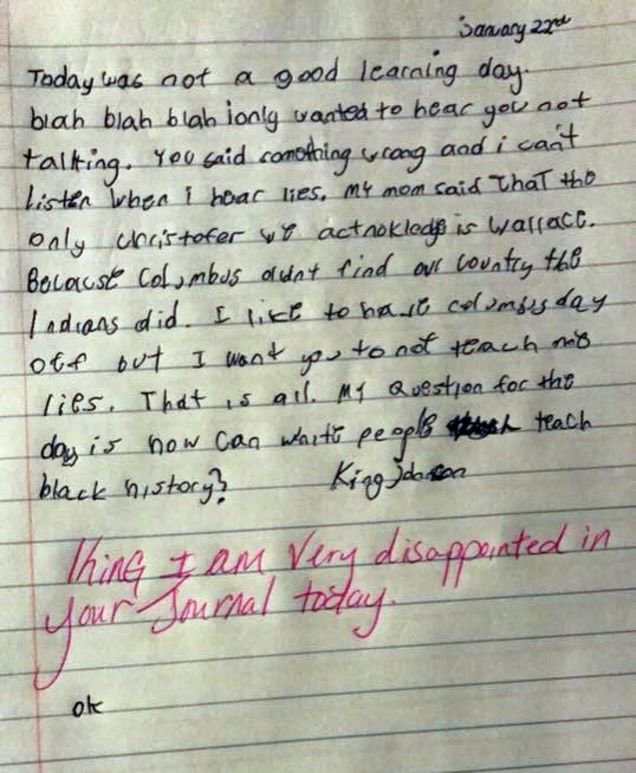 January 22nd
Today was not a good learning day.
blah blah blah i only wanted to hear you not
talking. You said something wrong and i can't
listen when i hear lies. My mom said that the
only christofer we acknokledge is wallace.
Because Columbus didnt find our country the
Indians did. I like to have columbus day
off but I want you to not teach me
lies. That is all. My question for the
day is how can white people teach
black history?
King Johnson
King I am very disappointed in
your Journal today.
ok